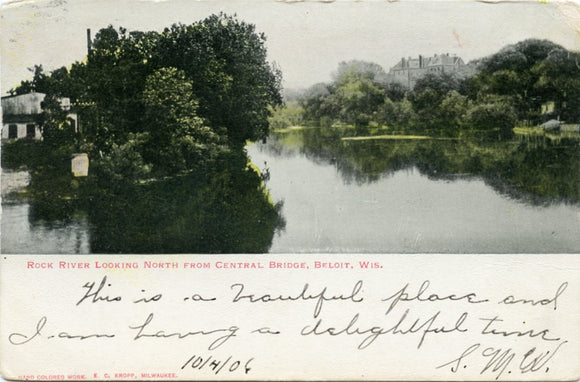 Rock River Looking North from Central Bridge, Beloit, Wis.
This is a beautiful place and
I am having a delightful time
10/4/06
S. M. W.
HAND COLORED WORK. E. C. KROPP, MILWAUKEE